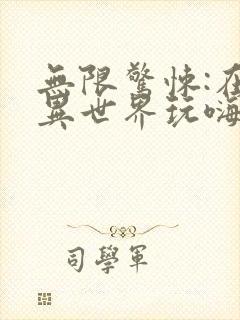 無限驚悚:在
異世界玩嗨
司學軍